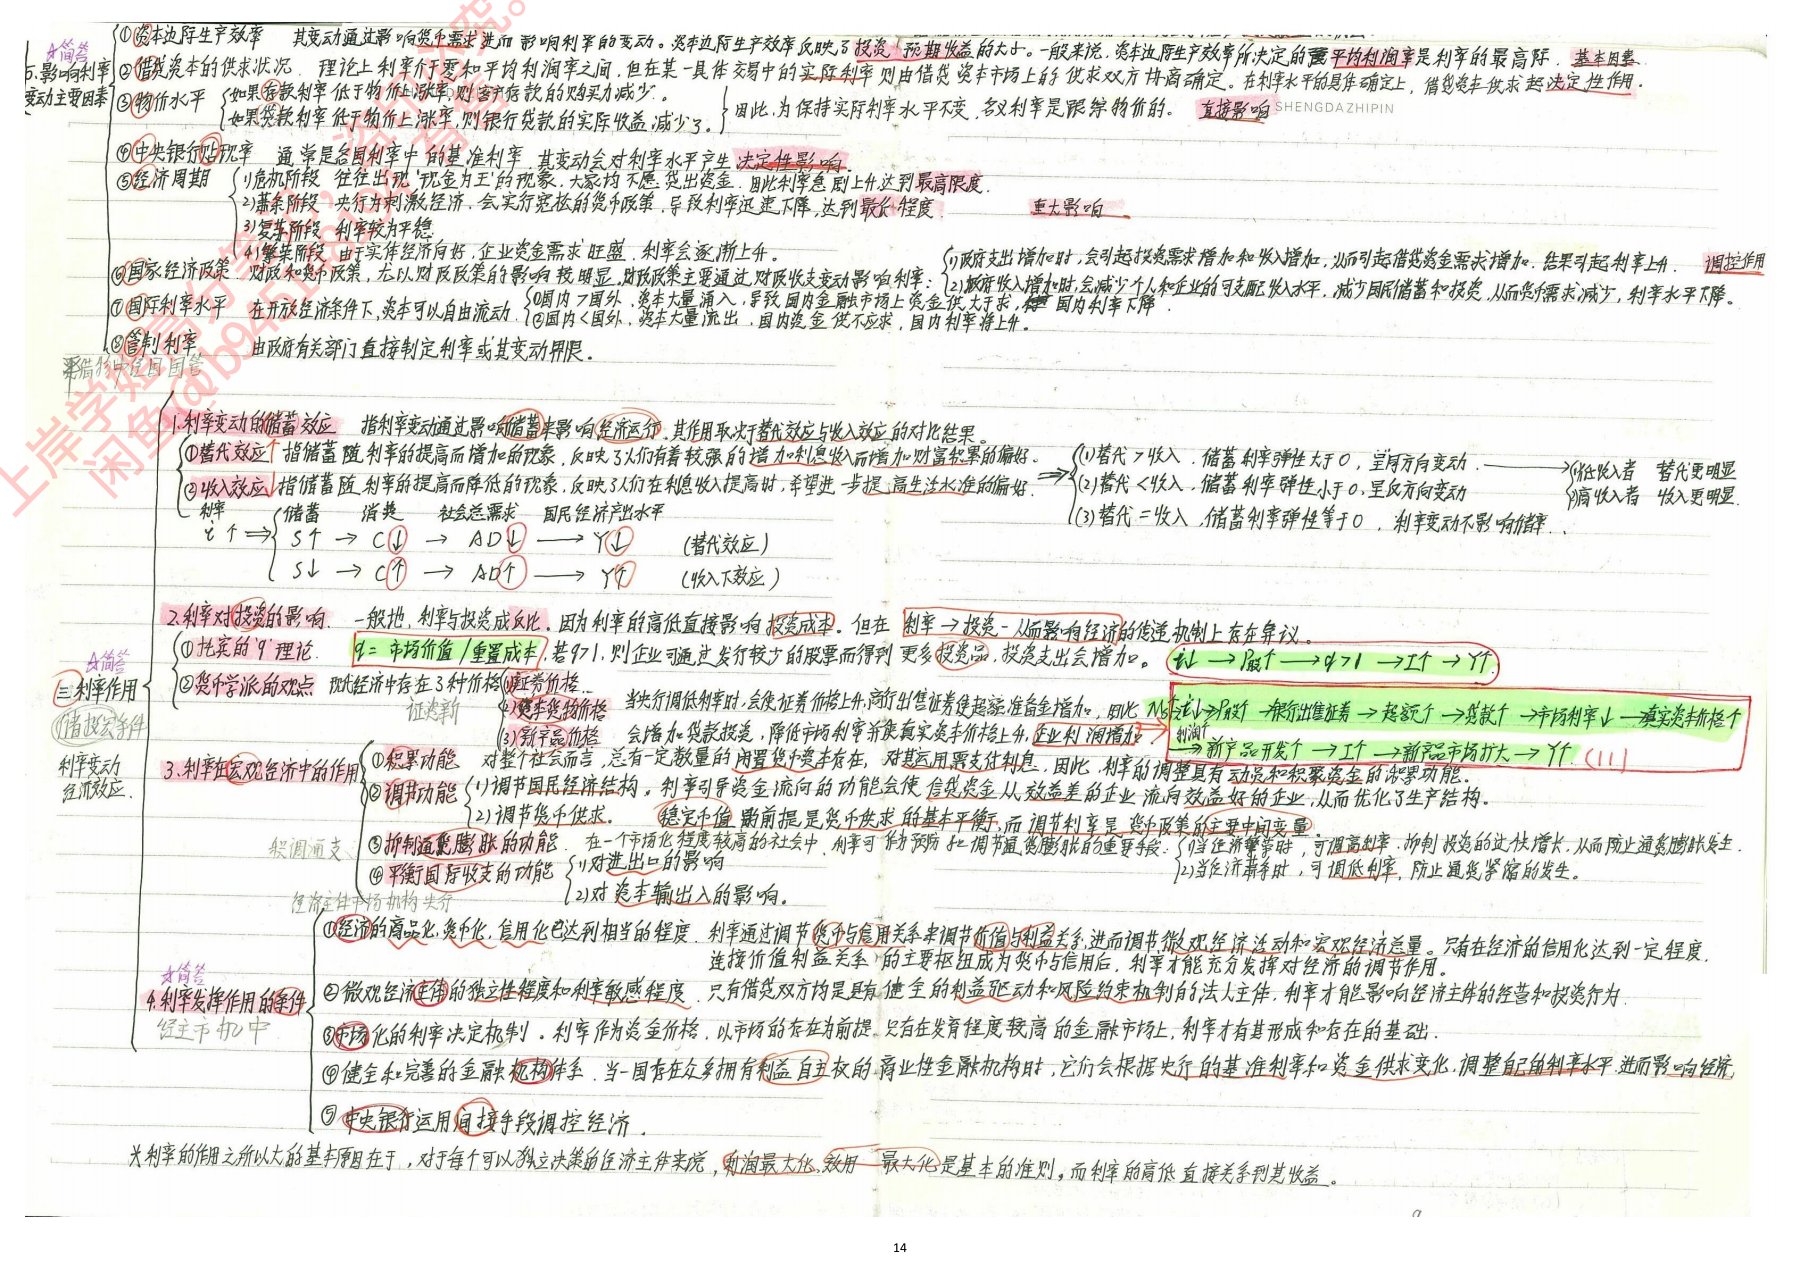 ☆简答
5.影响利率变动主要因素
①资本边际生产效率 其变动通过影响货币需求进而影响利率的变动。资本边际生产效率反映了投资预期收益的大小。一般来说,资本边际生产效率所决定的平均利润率是利率的最高际. 基本因素
②借贷资本的供求状况. 理论上利率介于零和平均利润率之间,但在某一具体交易中的实际利率则由借贷资本市场上的供求双方协商确定。在利率水平的具体确定上,借贷资本供求起决定性作用.
③物价水平
如果存款利率低于物价上涨率,则客户存款的购买力减少.
如果贷款利率低于物价上涨率,则银行贷款的实际收益减少了。
因此,为保持实际利率水平不变,名义利率是跟踪物价的。 直接影响
SHENGDAZHIPIN
④中央银行贴现率 通常是各国利率中的基准利率,其变动会对利率水平产生决定性影响.
⑤经济周期
1)危机阶段 往往出现'现金为王'的现象,大家均不愿贷出资金,因此利率急剧上升达到最高限度.
2)萧条阶段 央行为刺激经济,会实行宽松的货币政策,导致利率迅速下降,达到最低程度. 重大影响
3)复苏阶段 利率较为平稳
4)繁荣阶段 由于实体经济向好,企业资金需求旺盛,利率会逐渐上升.
⑥国家经济政策. 财政和货币政策,尤以财政政策的影响较明显,财政政策主要通过财政收支变动影响利率:
(1)政府支出增加时,会引起投资需求增加和收入增加,从而引起借贷资金需求增加,结果引起利率上升. 调控作用
(2)政府收入增加时,会减少个人和企业的可支配收入水平,减少国民储蓄和投资,从而货币需求减少,利率水平下降。
⑦国际利率水平 在开放经济条件下,资本可以自由流动.
①国内>国外,资本大量涌入,导致国内金融市场上资金供大于求,国内利率下降.
②国内<国外,资本大量流出,国内资金供不应求,国内利率将上升。
⑧管制利率, 由政府有关部门直接制定利率或其变动界限。
借物中经国国管
☆简答
三.利率作用
储投宏条件
利率变动经济效应.
1.利率变动的储蓄效应 指利率变动通过影响储蓄来影响经济运行,其作用取决于替代效应与收入效应的对比结果。
①替代效应↑ 指储蓄随利率的提高而增加的现象,反映了人们有着较强的增加利息收入而增加财富积累的偏好.
②收入效应↓ 指储蓄随利率的提高而降低的现象,反映了人们在利息收入提高时,希望进一步提高生活水准的偏好.
(1)替代>收入,储蓄利率弹性大于0,呈同方向变动. → 1)低收入者 替代更明显
(2)替代<收入,储蓄利率弹性小于0,呈反方向变动 2)高收入者 收入更明显.
(3)替代=收入,储蓄利率弹性等于0,利率变动不影响储率.
利率 储蓄 消费 社会总需求 国民经济产出水平
i↑ ⇒ S↑ → C↓ → AD↓ → Y↓ (替代效应)
S↓ → C↑ → AD↑ → Y↑ (收入下效应)
2.利率对投资的影响. 一般地,利率与投资成反比,因为利率的高低直接影响投资成本.但在利率→投资-从而影响经济的传递机制上存在异议。
①托宾的'q'理论. q=市场价值/重置成本,若q>1,则企业可通过发行较少的股票而得到更多投资品,投资支出会增加。 i↓→P股↑→q>1→I↑→Y↑.
②货币学派的观点 现代经济中存在3种价格
证类新
(1)证券价格
(2)现存货物价格
(3)新产品价格
当央行调低利率时,会使证券价格上升,商行出售证券使超额准备金增加,因此
会增加贷款投资,降低市场利率并使真实资本价格上升,企业利润增加
i↓→P股↑→银行出售证券→超额↑→贷款↑→市场利率↓→真实资本价格↑
利润↑→新产品开发↑→I↑→新产品市场扩大→Y↑.
3.利率在宏观经济中的作用
积调通支
①积累功能 对整个社会而言,总有一定数量的闲置货币资本存在,对其运用需支付利息,因此,利率的调整具有动员和积聚资金的积累功能。
②调节功能
(1)调节国民经济结构。利率引导资金流向的功能会使信贷资金从效益差的企业流向效益好的企业,从而优化了生产结构。
(2)调节货币供求。 稳定币值前提是货币供求的基本平衡,而调节利率是货币政策的主要中间变量.
③抑制通货膨胀的功能. 在一个市场化程度较高的社会中,利率可作为预防和调节通货膨胀的重要手段:
1)当经济繁荣时,可调高利率,抑制投资的过快增长,从而防止通货膨胀发生.
2)当经济萧条时,可调低利率,防止通货紧缩的发生。
④平衡国际收支的功能
1)对进出口的影响
2)对资本输出入的影响。
经济主体市场机构央行
☆简答
4.利率发挥作用的条件
经主市机中
①经济的商品化,货币化,信用化已达到相当的程度. 利率通过调节货币与信用关系来调节价值与利益关系,进而调节微观经济活动和宏观经济总量。只有在经济的信用化达到一定程度,
连接价值利益关系的主要枢纽成为货币与信用后,利率才能充分发挥对经济的调节作用。
②微观经济主体的独立性程度和利率敏感程度. 只有借贷双方均是具有健全的利益驱动和风险约束机制的法人主体,利率才能影响经济主体的经营和投资行为.
③市场化的利率决定机制。利率作为资金价格,以市场的存在为前提.只有在发育程度较高的金融市场上,利率才有其形成和存在的基础.
④健全和完善的金融机构体系.当一国存在众多拥有利益自主权的商业性金融机构时,它们会根据央行的基准利率和资金供求变化,调整自己的利率水平,进而影响经济.
⑤中央银行运用间接手段调控经济.
※利率的作用之所以大的基本原因在于,对于每个可以独立决策的经济主体来说,利润最大化,效用最大化是基本的准则,而利率的高低直接关系到其收益。
14